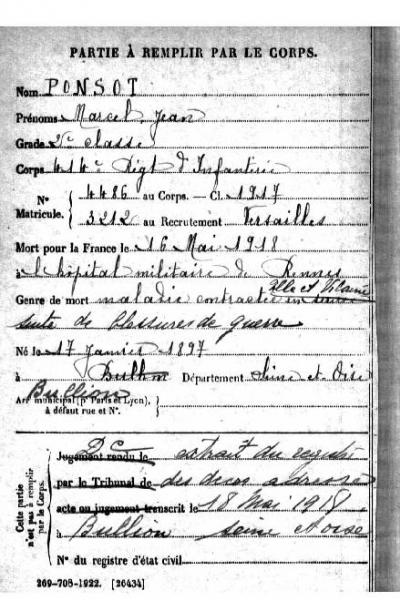 PARTIE À REMPLIR PAR LE CORPS.
Nom PONSOT
Prénoms Marcel, Jean
Grade 2e classe
Corps 414e Régt d'Infanterie
N° Matricule. { 4486 au Corps. — Cl. 1917
3212 au Recrutement Versailles
Mort pour la France le 16 Mai 1918
à l'hôpital militaire de Rennes
Ille et Vilaine
Genre de mort maladie contractée en
suite de blessures de guerre
Né le 17 Janvier 1897
à Département Seine et Oise
Bullion
Arr municipal (p' Paris et Lyon),
à défaut rue et N°.
Cette partie n'est pas à remplir par le Corps.
Jugement rendu le extrait du registre
par le Tribunal de des décès adressé
acte ou jugement transcrit le 18 Mai 1918
à Bullion Seine et Oise
N° du registre d'état civil
269-708-1922. [26434]